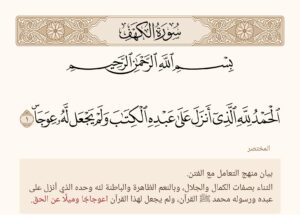 سُورَةُ الكَهْفِ
بِسْمِ اللَّهِ الرَّحْمَٰنِ الرَّحِيمِ
الْحَمْدُ لِلَّهِ الَّذِي أَنزَلَ عَلَىٰ عَبْدِهِ الْكِتَابَ وَلَمْ يَجْعَل لَّهُ عِوَجَاۜ ١
المختصر
بيان منهج التعامل مع الفتن.
الثناء بصفات الكمال والجلال، وبالنعم الظاهرة والباطنة لله وحده الذي أنزل على
عبده ورسوله محمد ﷺ القرآن، ولم يجعل لهذا القرآن اعوجاجًا وميلًا عن الحق.